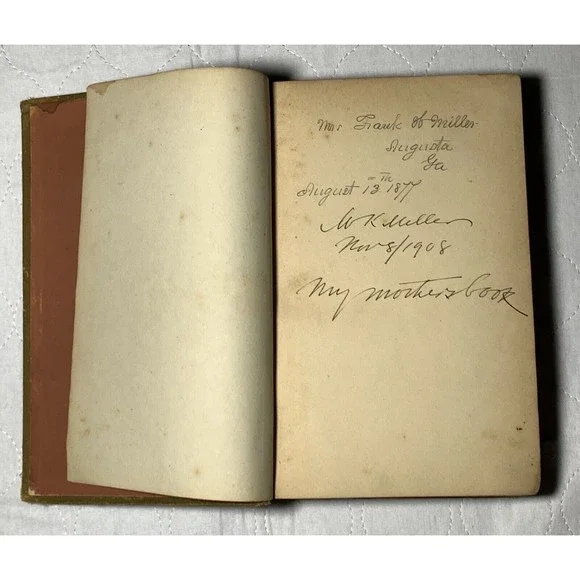 Mrs Frank H Miller
Augusta
Ga
August 13th 1877
W K Miller
Nov 8/1908
My mother's book